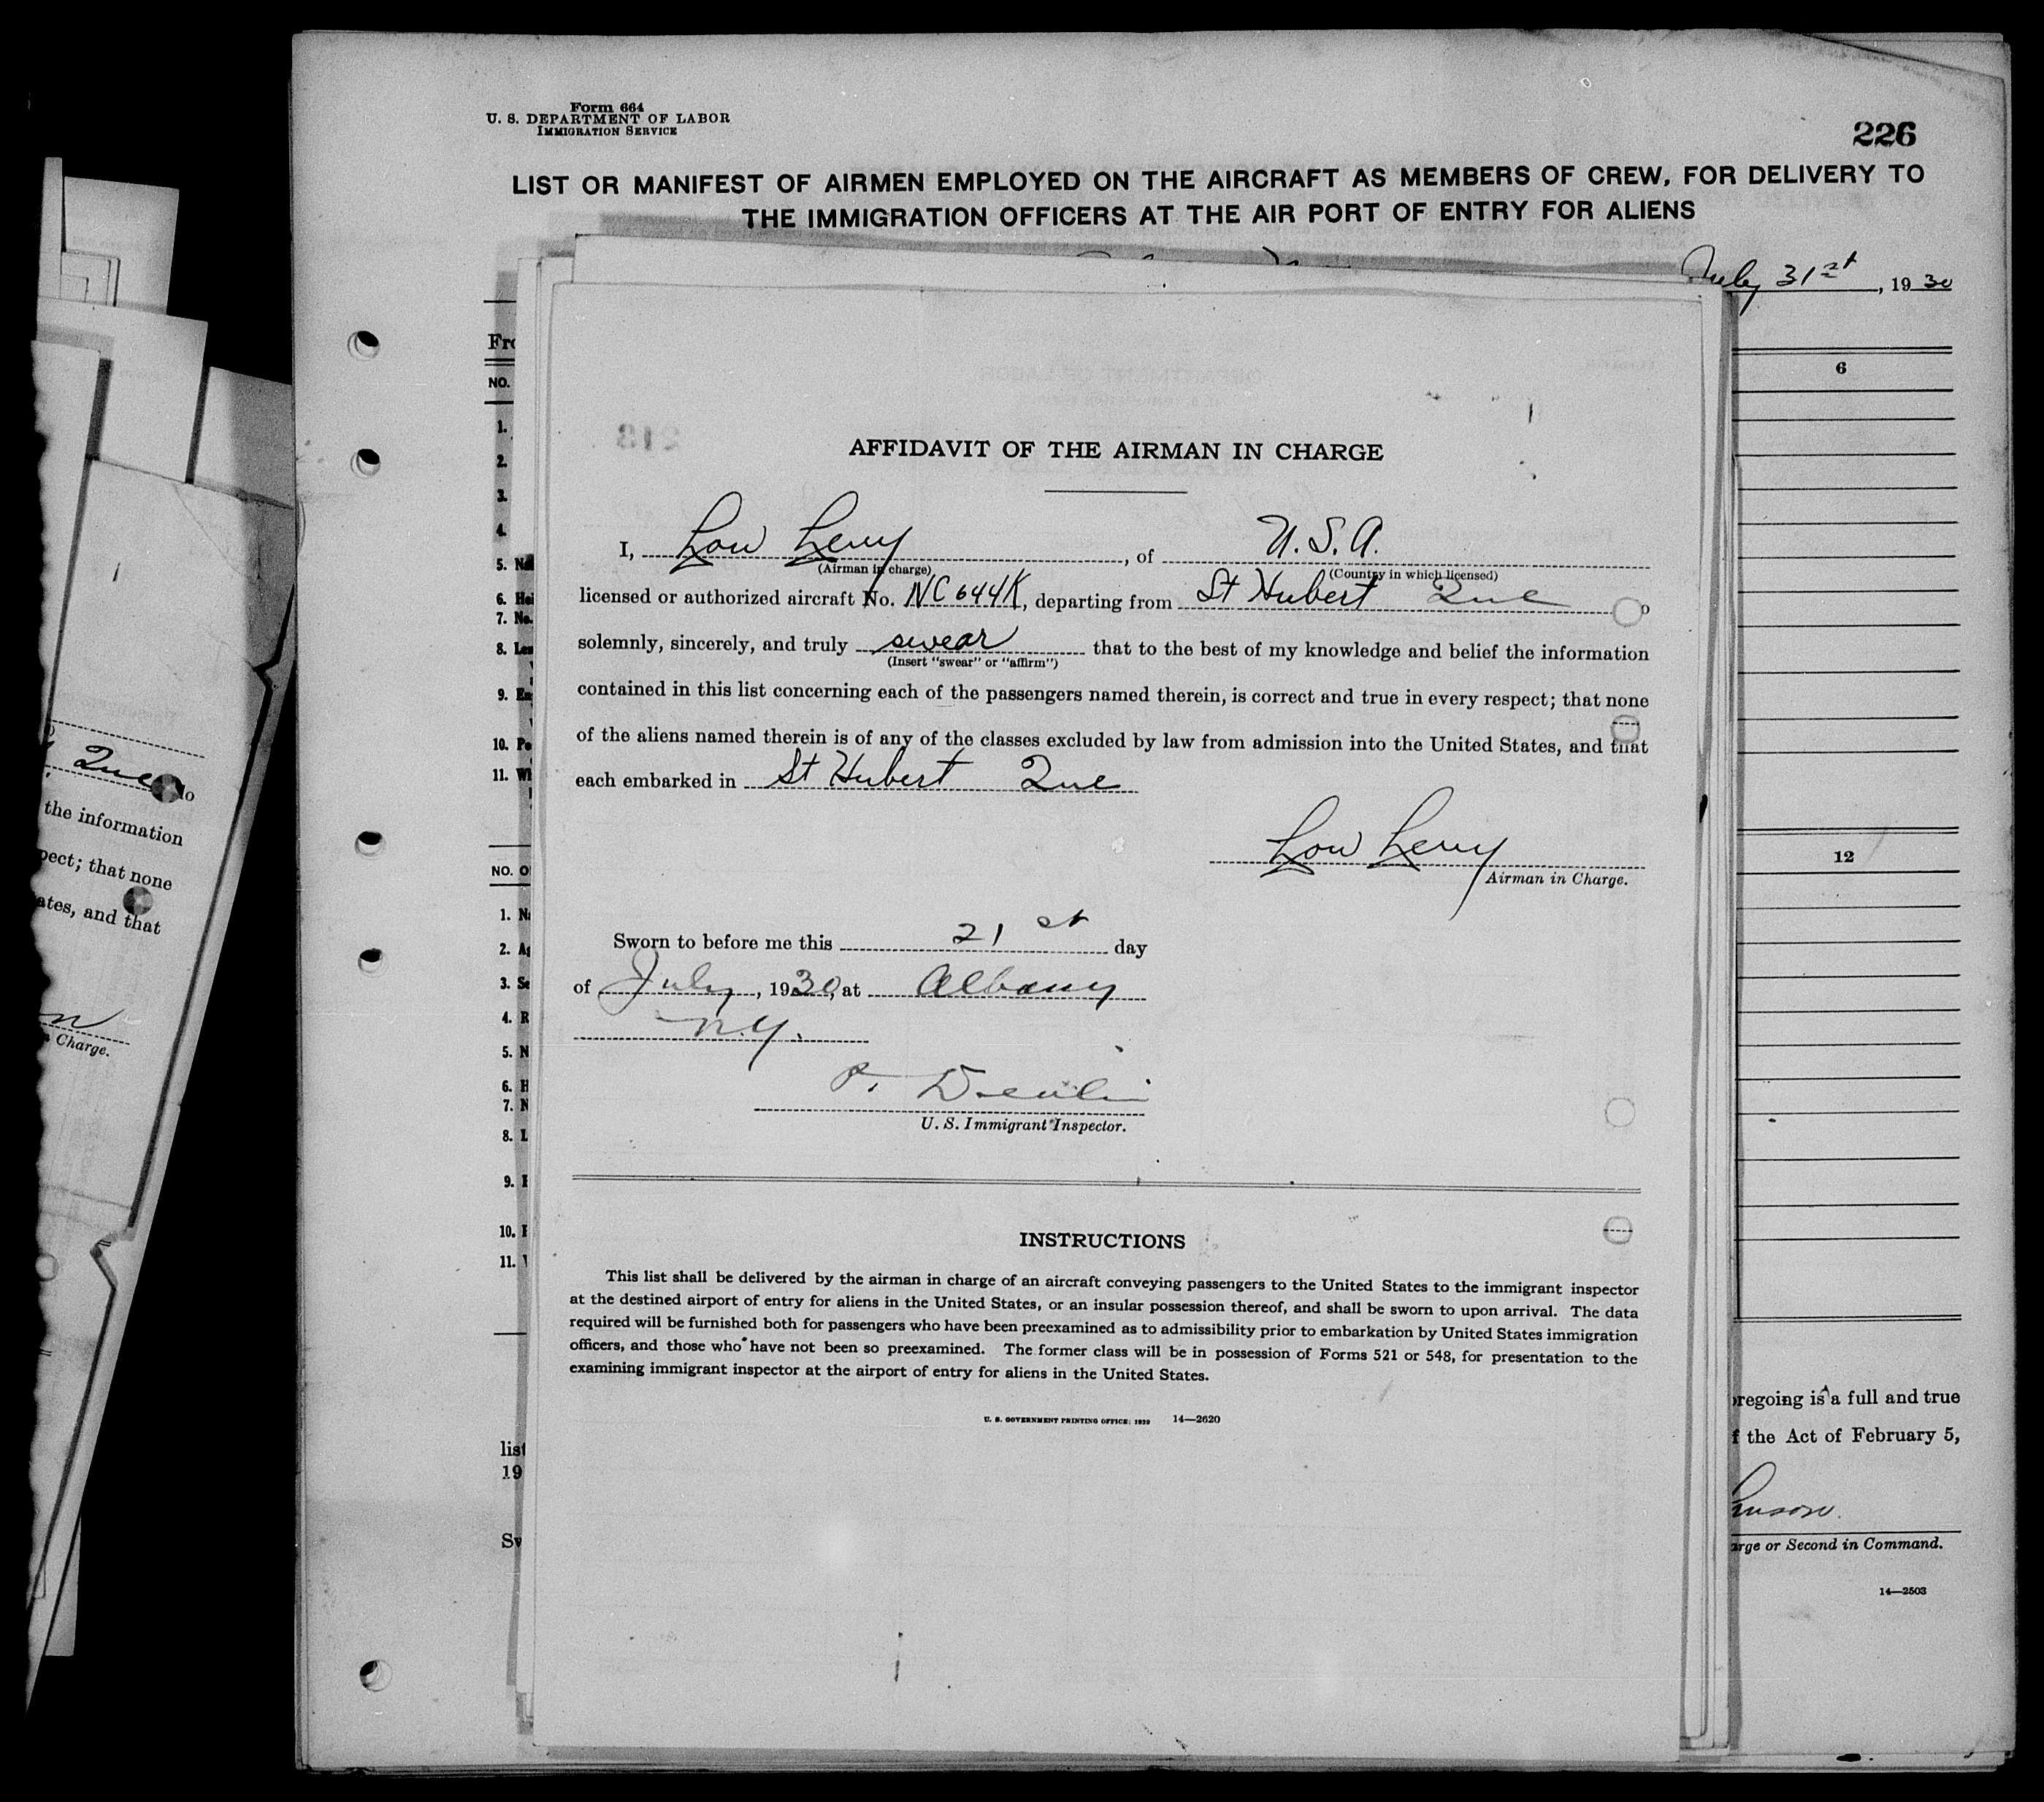 Form 664
U. S. DEPARTMENT OF LABOR
IMMIGRATION SERVICE
226
LIST OR MANIFEST OF AIRMEN EMPLOYED ON THE AIRCRAFT AS MEMBERS OF CREW, FOR DELIVERY TO
THE IMMIGRATION OFFICERS AT THE AIR PORT OF ENTRY FOR ALIENS
July 31st, 1930
Fro
NO.
6
1.
2.
3.
4.
5. Na
6. Hei
7. No.
8. Les
9. En
10. Po
11. Wh
12
NO. O
1. Na
2. Ag
3. Se
4. R
5. N
6. H
7. N
8. L
9. H
10.
11.
AFFIDAVIT OF THE AIRMAN IN CHARGE
I, Low Levy, of U.S.A.
(Airman in charge) (Country in which licensed)
licensed or authorized aircraft No. NC644K, departing from St Hubert Que o
solemnly, sincerely, and truly swear that to the best of my knowledge and belief the information
(Insert "swear" or "affirm")
contained in this list concerning each of the passengers named therein, is correct and true in every respect; that none
of the aliens named therein is of any of the classes excluded by law from admission into the United States, and that
each embarked in St Hubert Que
Low Levy
Airman in Charge.
Sworn to before me this 21st day
of July, 1930, at Albany
N.Y.
P. Devlin
U. S. Immigrant Inspector.
INSTRUCTIONS
This list shall be delivered by the airman in charge of an aircraft conveying passengers to the United States to the immigrant inspector
at the destined airport of entry for aliens in the United States, or an insular possession thereof, and shall be sworn to upon arrival. The data
required will be furnished both for passengers who have been preexamined as to admissibility prior to embarkation by United States immigration
officers, and those who have not been so preexamined. The former class will be in possession of Forms 521 or 548, for presentation to the
examining immigrant inspector at the airport of entry for aliens in the United States.
U. S. GOVERNMENT PRINTING OFFICE: 1929 14—2620
list
19
Sw
oregoing is a full and true
f the Act of February 5,
arge or Second in Command.
14—2503
Que do
the information
pect; that none
ates, and that
Charge.